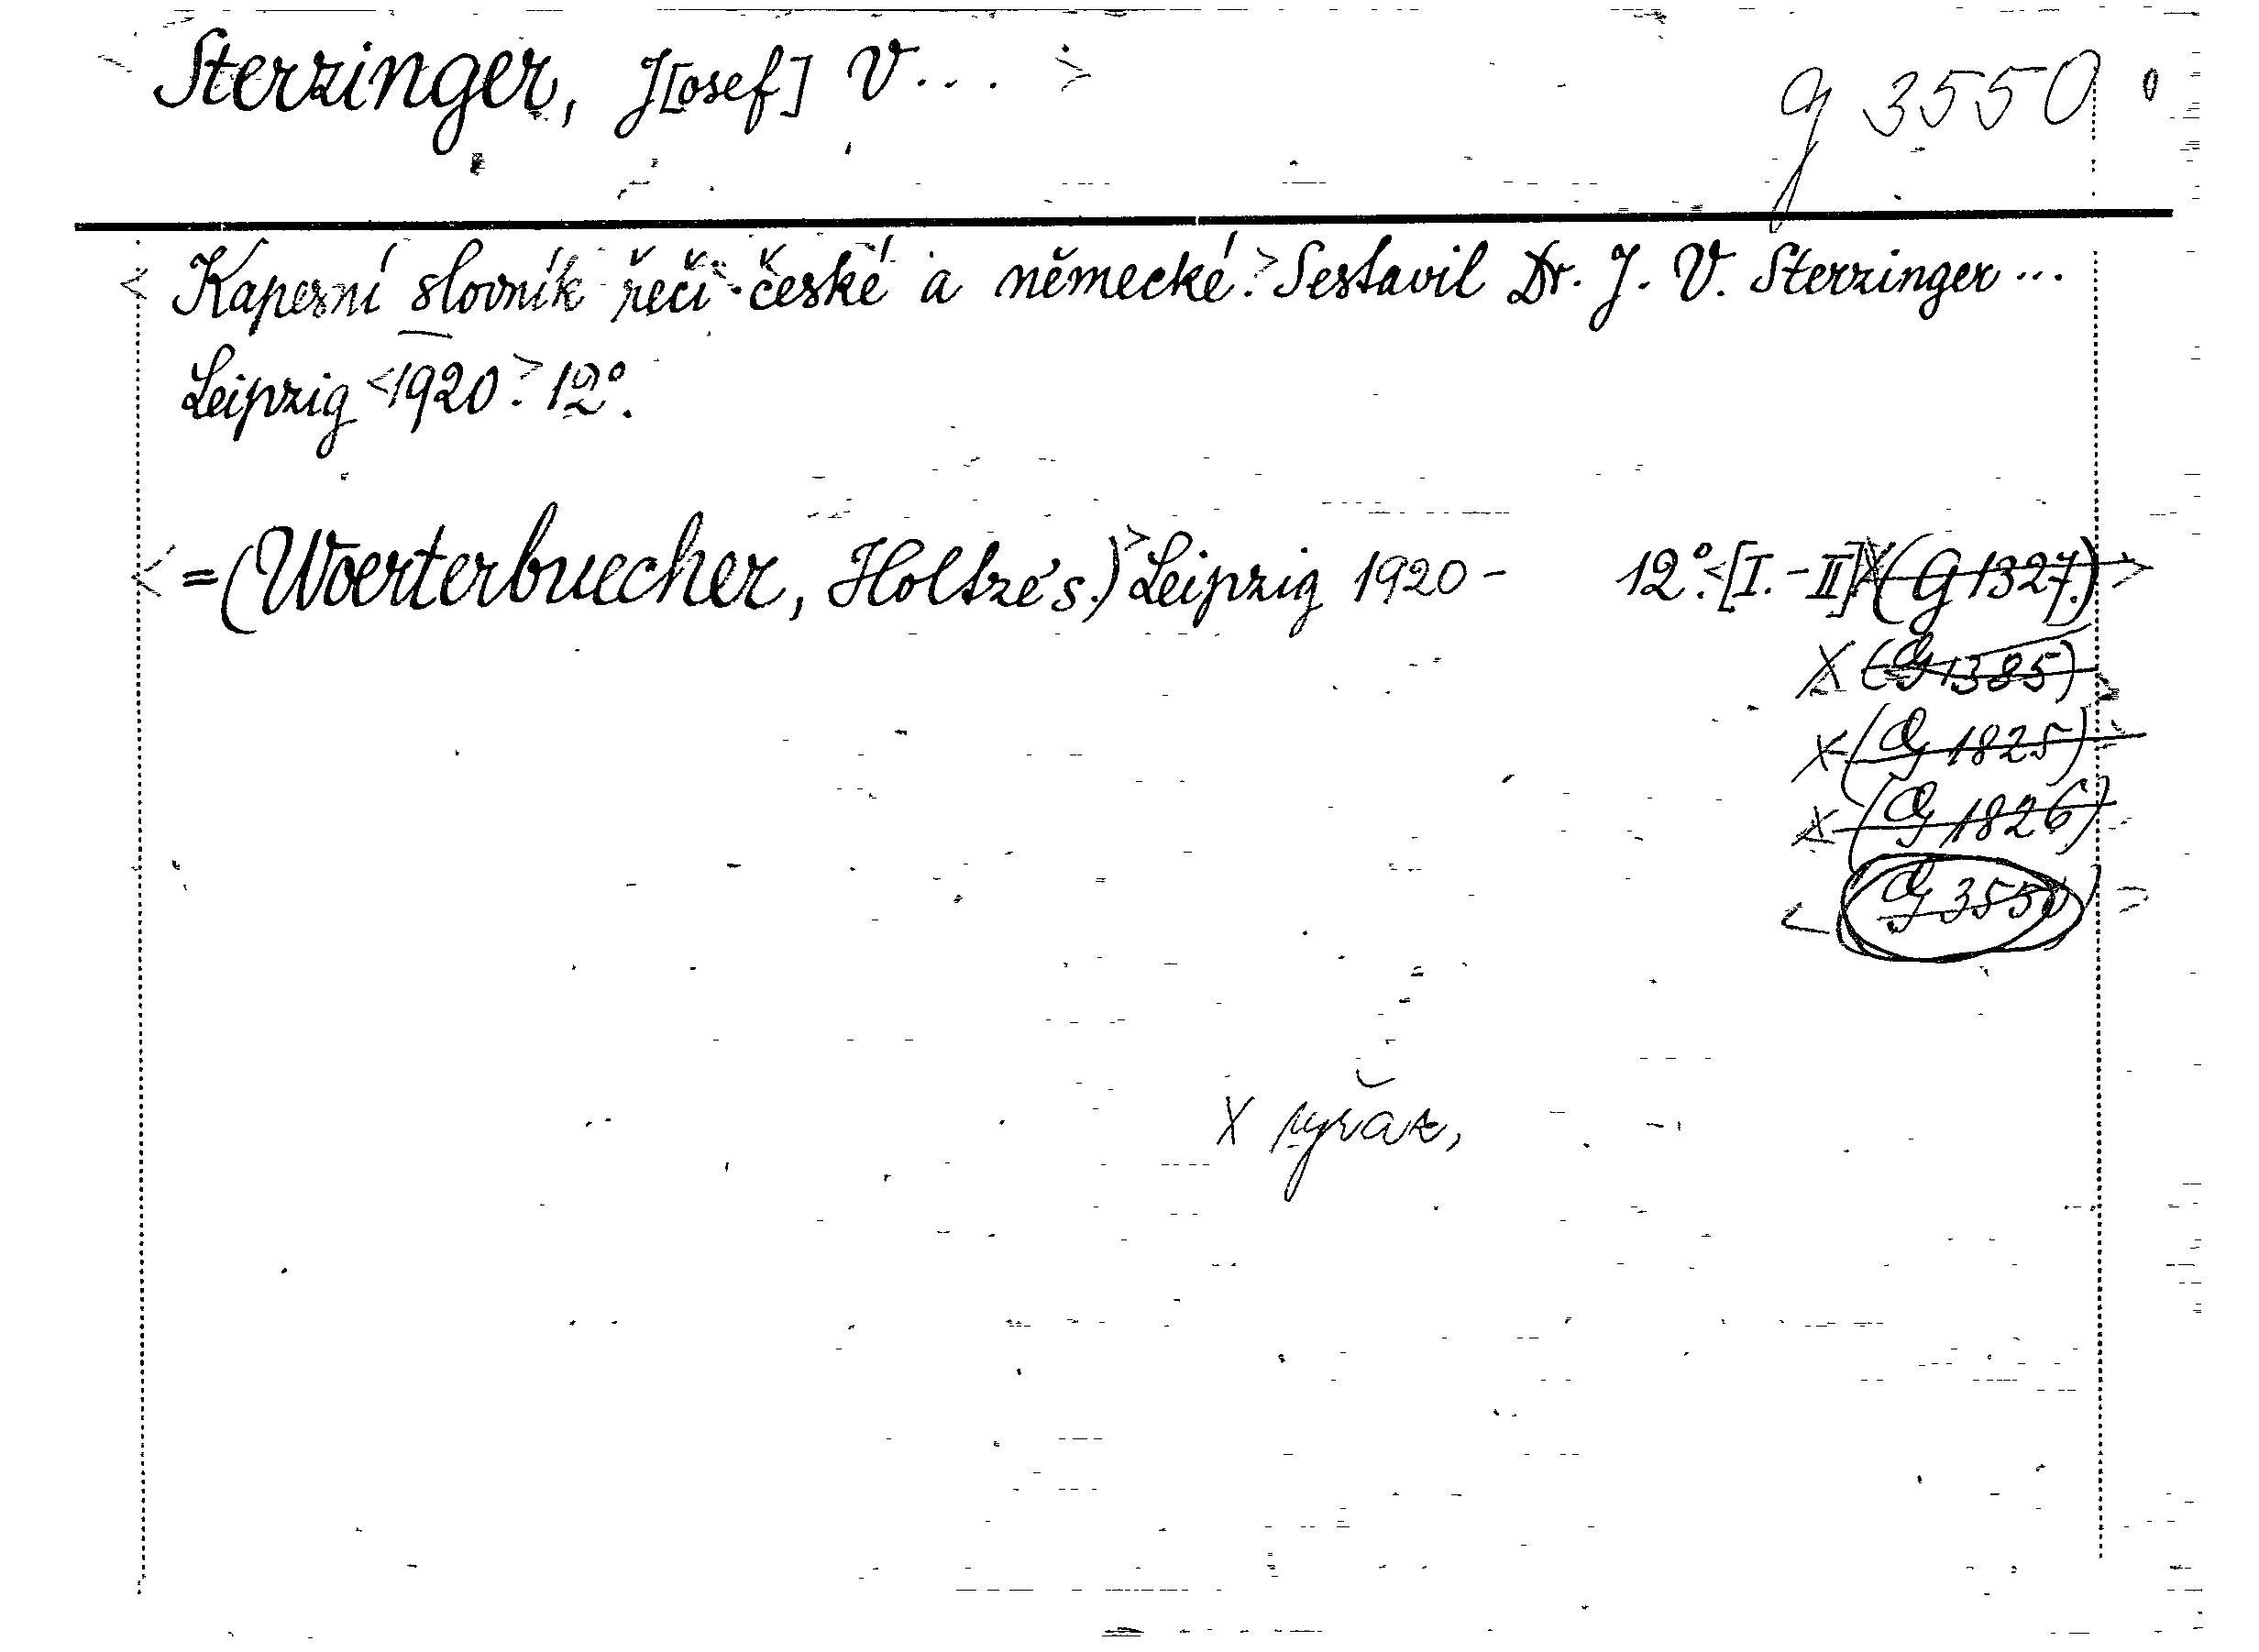 Sterzinger, J[osef] V... > g 3550
< Kapesní slovník řeči české a německé.> Sestavil Dr. J. V. Sterzinger...
Leipzig <1920.> 12º.
< = (Woerterbuecher, Holtze's.)> Leipzig 1920 - 12º. <[I.-II] X (G 1327.) >
X (G 1385) >
X (G 1825) >
X (G 1826) >
< G 3550) >
X vyřaz,